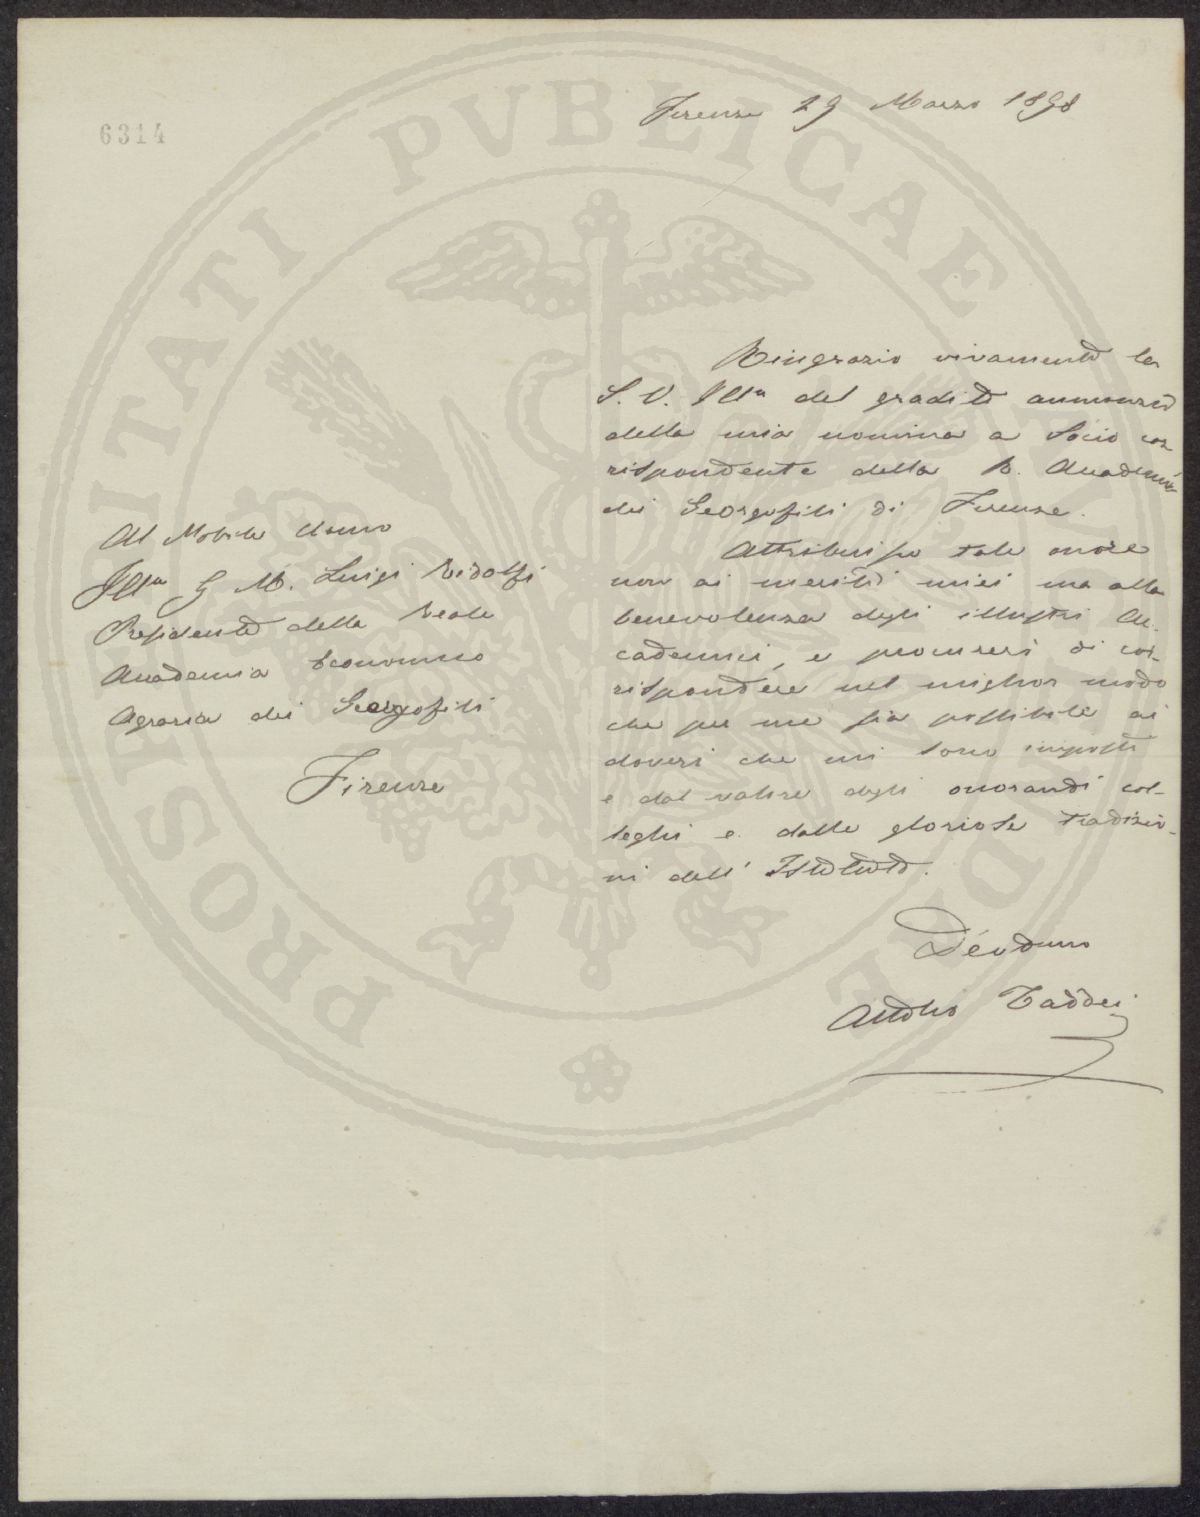 6314
Firenze 29 Marzo 1898
Ringrazio vivamente la
S. V. Illma del gradito annunzio
della mia nomina a Socio cor
rispondente della R. Accademia
dei Georgofili di Firenze.
Attribuisco tale onore
non ai meriti miei ma alla
benevolenza degli illustri Ac-
cademici, e procurerò di cor-
rispondere nel miglior modo
che per me sia possibile ai
doveri che mi sono imposti
e dal valore degli onorandi col-
leghi e dalle gloriose tradizio-
ni dell' Istituto.
Devotmo
Attilio Taddei
Al Nobile Uomo
Illmo S M. Luigi Ridolfi
Presidente della Reale
Accademia Economico
Agraria dei Georgofili
Firenze
PROSPERITATI PVBLICAE AVGENDAE